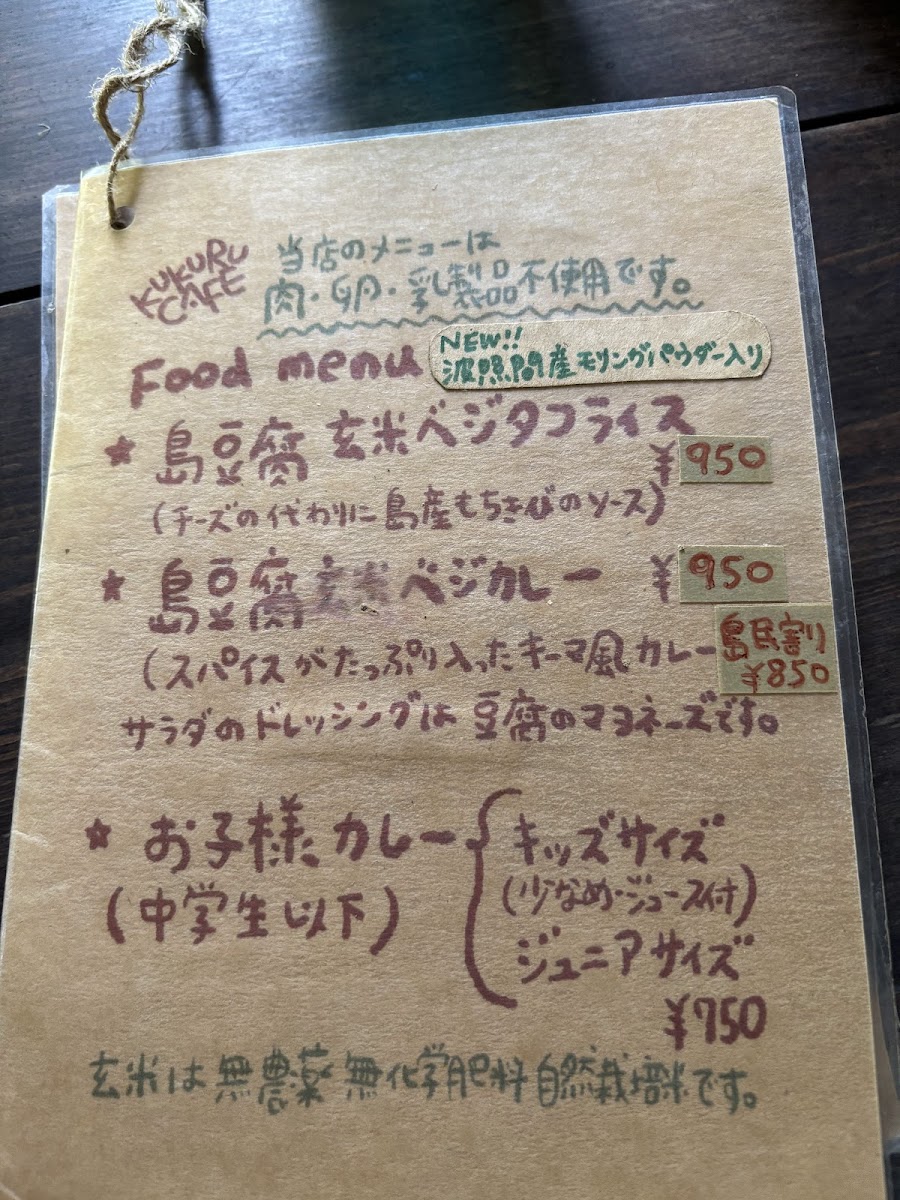 KUKURU
CAFE
当店のメニューは
肉・卵・乳製品不使用です。
Food menu
NEW!!
波照間産モリンガパウダー入り
★島豆腐玄米ベジタコライス
¥950
(チーズの代わりに島産もちきびのソース)
★島豆腐玄米ベジカレー ¥950
(スパイスがたっぷり入ったキーマ風カレー
島民割り
¥850
サラダのドレッシングは豆腐のマヨネーズです。
★お子様カレー
(中学生以下)
キッズサイズ
(少なめ・ジュース付)
ジュニアサイズ
¥750
玄米は無農薬無化学肥料自然栽培米です。